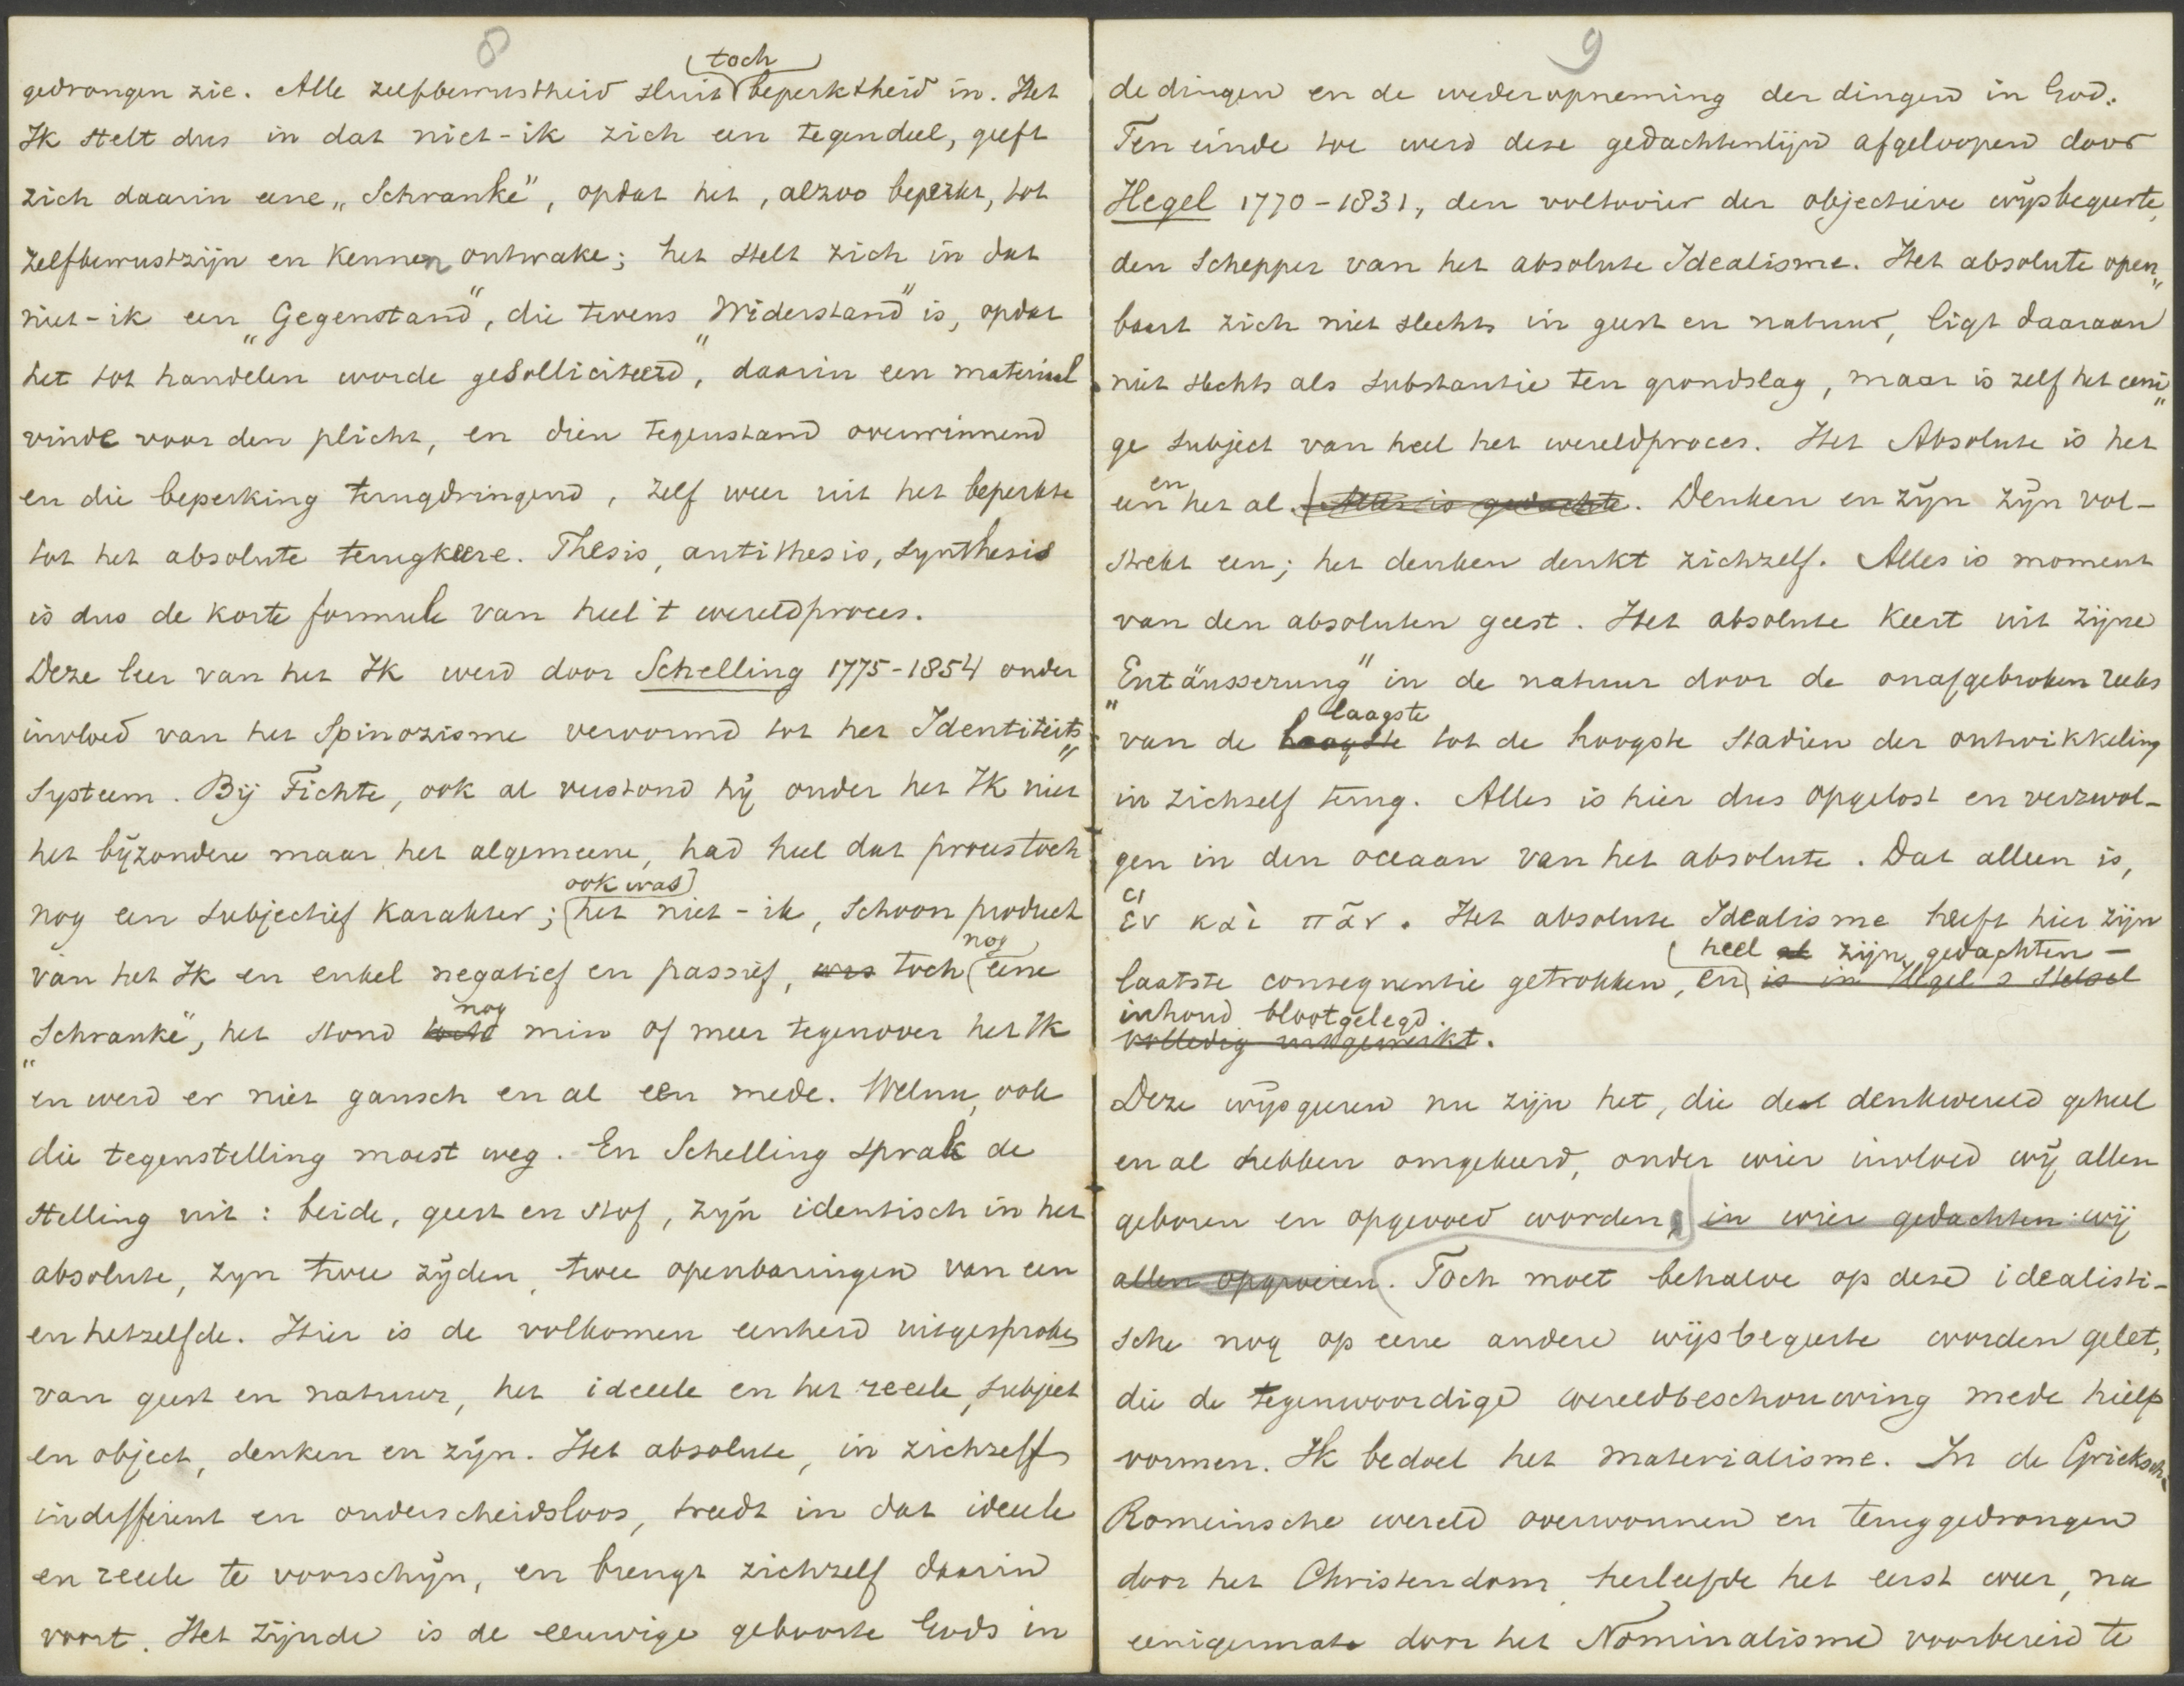 8
toch
gedrongen zie. Alle zelfbewustheid sluit beperktheid in. Het
Ik stelt dus in dat niet-ik zich een tegendeel, geeft
zich daarin eene „Schranke", opdat het, alzoo beperkt, tot
zelfbewustzijn en kennen ontwake; het stelt zich in dat
niet-ik een „Gegenstand", die tevens „Widerstand" is, opdat
het tot handelen worde gesolliciteerd, daarin een materiaal
vinde voor den plicht, en dien tegenstand overwinnend
en die beperking terugdringend, zelf weer uit het beperkte
tot het absolute terugkeere. Thesis, antithesis, synthesis
is dus de korte formule van heel 't wereldproces.
Deze leer van het Ik werd door Schelling 1775-1854 onder
invloed van het Spinozisme vervormd tot het Identiteits„
systeem. Bij Fichte, ook al verstond hij onder het Ik niet
het bijzondere maar het algemeene, had heel dat proces toch
ook was
nog een subjectief karakter; het niet-ik, schoon product
nog
van het Ik en enkel negatief en passief, was toch eene
nog
„Schranke", het stond toch min of meer tegenover het Ik
en werd er niet gansch en al een mede. Welnu, ook
die tegenstelling moest weg. En Schelling sprak de
stelling uit: beide, geest en stof, zijn identisch in het
absolute, zyn twee zijden, twee openbaringen van een
en hetzelfde. Hier is de volkomen eenheid uitgesproken
van geest en natuur, het ideeele en het reeele, subject
en object, denken en zijn. Het absolute, in zichzelf
indifferent en onderscheidsloos, treedt in dat ideeele
en reeele te voorschijn, en brengt zichzelf daarin
voort. Het zijnde is de eeuwige geboorte Gods in
9
de dingen en de wederopneming der dingen in God.
Ten einde toe werd deze gedachtenlijn afgeloopen door
Hegel 1770-1831, den voltooier der objectieve wijsbegeerte,
den Schepper van het absolute Idealisme. Het absolute open„
baart zich niet slechts in geest en natuur, ligt daaraan
niet slechts als substantie ten grondslag, maar is zelf het eeni„
ge subject van heel het wereldproces. Het Absolute is het
en
een het al. Alles is gedachte. Denken en zijn zijn vol-
strekt een; het denken denkt zichzelf. Alles is moment
van den absoluten geest. Het absolute keert uit zijne
„Entäusserung" in de natuur door de onafgebroken reeks
laagste
van de hoogste tot de hoogste stadien der ontwikkeling
in zichzelf terug. Alles is hier dus opgelost en verzwol-
gen in den oceaan van het absolute. Dat alleen is,
ἓν καὶ πᾶν. Het absolute Idealisme heeft hier zijn
heel al zijn gedachten-
laatste consequentie getrokken, en is in Hegel's stelsel
inhoud blootgelegd.
volledig uitgewerkt.
Deze wijsgeeren nu zijn het, die de denkwereld geheel
en al hebben omgekeerd, onder wier invloed wij allen
geboren en opgevoed worden, in wier gedachten wij
allen opgroeien. Toch moet behalve op deze idealisti-
sche nog op eene andere wijsbegeerte worden gelet,
die de tegenwoordige wereldbeschouwing mede hielp
vormen. Ik bedoel het materialisme. In de Grieksch-
Romeinsche wereld overwonnen en teruggedrongen
door het Christendom, herleefde het eerst weer, na
eenigermate door het Nominalisme voorbereid te